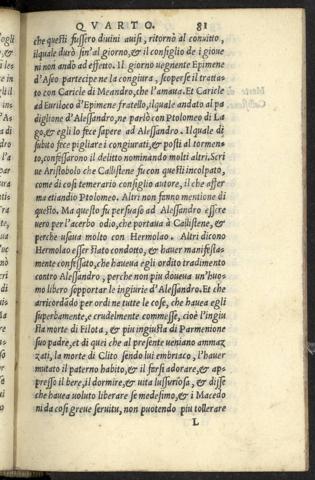 QVARTO. 81
che questi fussero diuini auisi, ritornò al conuito,
ilquale durò sin'al giorno, & il consiglio de i gioue
ni non andò ad effetto. Il giorno uegnente Epimene
d'Aseo partecipe ne la congiura, scoperse il tratta
to con Caricle di Meandro, che l'amaua. Et Caricle
ad Euriloco d'Epimene fratello, ilquale andato al pa
diglione d'Alessandro, ne parlò con Ptolomeo di La
go, & egli lo fece sapere ad Alessandro. Ilquale di
subito fece pigliare i congiurati, & posti al tormen
to, confessarono il delitto nominando molti altri. Scri
ue Aristobolo che Callistene fu con questi incolpato,
come di cosi temerario consiglio autore, il che affer
ma etiandio Ptolomeo. Altri non fanno mentione di
questo. Ma questo fu persuaso ad Alessandro essere
uero per l'acerbo odio, che portaua à Callistene, &
perche usaua molto con Hermolao. Altri dicono
Hermolao esser stato condotto, & hauer manifesta-
mente confessato, che haueua egli ordito tradimento
contro Alessandro, perche non piu doueua un'huo-
mo libero sopportar le ingiurie d'Alessandro. Et che
arricordādo per ordine tutte le cose, che hauea egli
superbamente, e crudelmente commesse, cioè l'ingiu
sta morte di Filota, & piu ingiusta di Parmenione
suo padre, et di quei che al presente ueniano ammaz
zati, la morte di Clito sendo lui embriaco, l'hauer
mutato il paterno habito, & il farsi adorare, & ap-
presso il bere, il dormire, & uita lussuriosa, & disse
che hauea uoluto liberare se medesimo, & i Macedo
ni da cosi greue seruitu, non puotendo piu tollerare
L